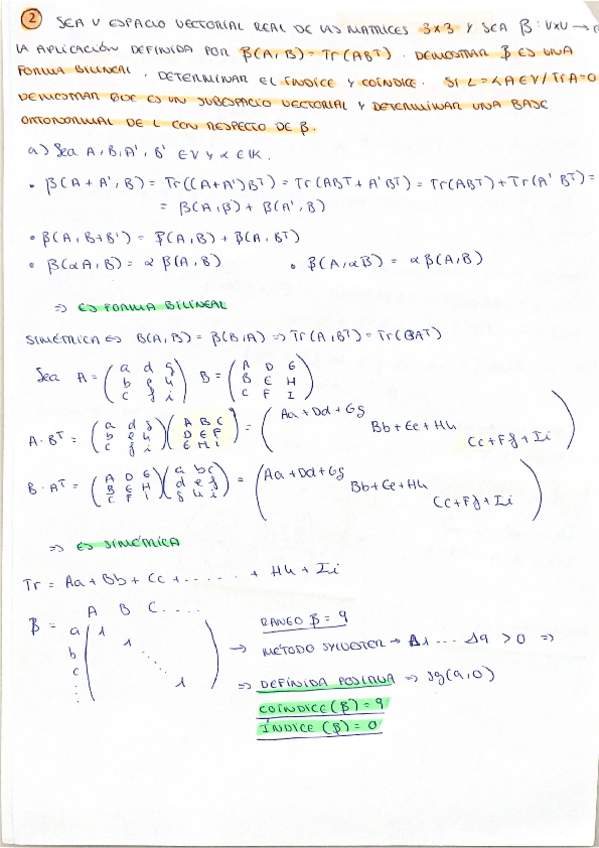 2 SEA V ESPACIO VECTORIAL REAL DE LAS MATRICES 3x3 Y SEA β: VxV →
LA APLICACIÓN DEFINIDA POR β(A,B) = Tr(ABᵀ). DEMOSTRAR β ES UNA
FORMA BILINEAL. DETERMINAR EL ÍNDICE Y COÍNDICE. SI L = {A ∈ V / TrA = 0
DEMOSTRAR QUE ES UN SUBESPACIO VECTORIAL Y DETERMINAR UNA BASE
ORTONORMAL DE L CON RESPECTO DE β.
a) Sea A, B, A', B' ∈ V y α ∈ IK.
• β(A + A', B) = Tr((A+A')Bᵀ) = Tr(ABᵀ + A'Bᵀ) = Tr(ABᵀ) + Tr(A'Bᵀ) =
= β(A,B) + β(A',B)
• β(A, B+B') = β(A,B) + β(A,Bᵀ)
• β(αA, B) = α β(A,B) • β(A, αB) = αβ(A,B)
⇒ ES FORMA BILINEAL
SIMÉTRICA ⇔ β(A,B) = β(B,A) ⇒ Tr(A,Bᵀ) = Tr(BAᵀ)
Sea A = (a d g B = (A D G
b e h B E H
c f i) C F I)
A·Bᵀ = (a d g (A B C = (Aa + Dd + Gg
b e h D E F Bb + Ee + Hh
c f i) G H I) Cc + Ff + Ii)
B·Aᵀ = (A D G (a b c = (Aa + Dd + Gg
B E H d e f Bb + Ee + Hh
C F I) g h i) Cc + Ff + Ii)
⇒ ES SIMÉTRICA
Tr = Aa + Bb + Cc + ...... + Hh + Ii
A B C ....
β = a (1 RANGO β = 9
b 1 → MÉTODO SYLVESTER → Δ1 ... Δ9 > 0 ⇒
c ⋱ ⇒ DEFINIDA POSITIVA ⇒ sg(9,0)
⋮ 1) COÍNDICE (β) = 9
ÍNDICE (β) = 0